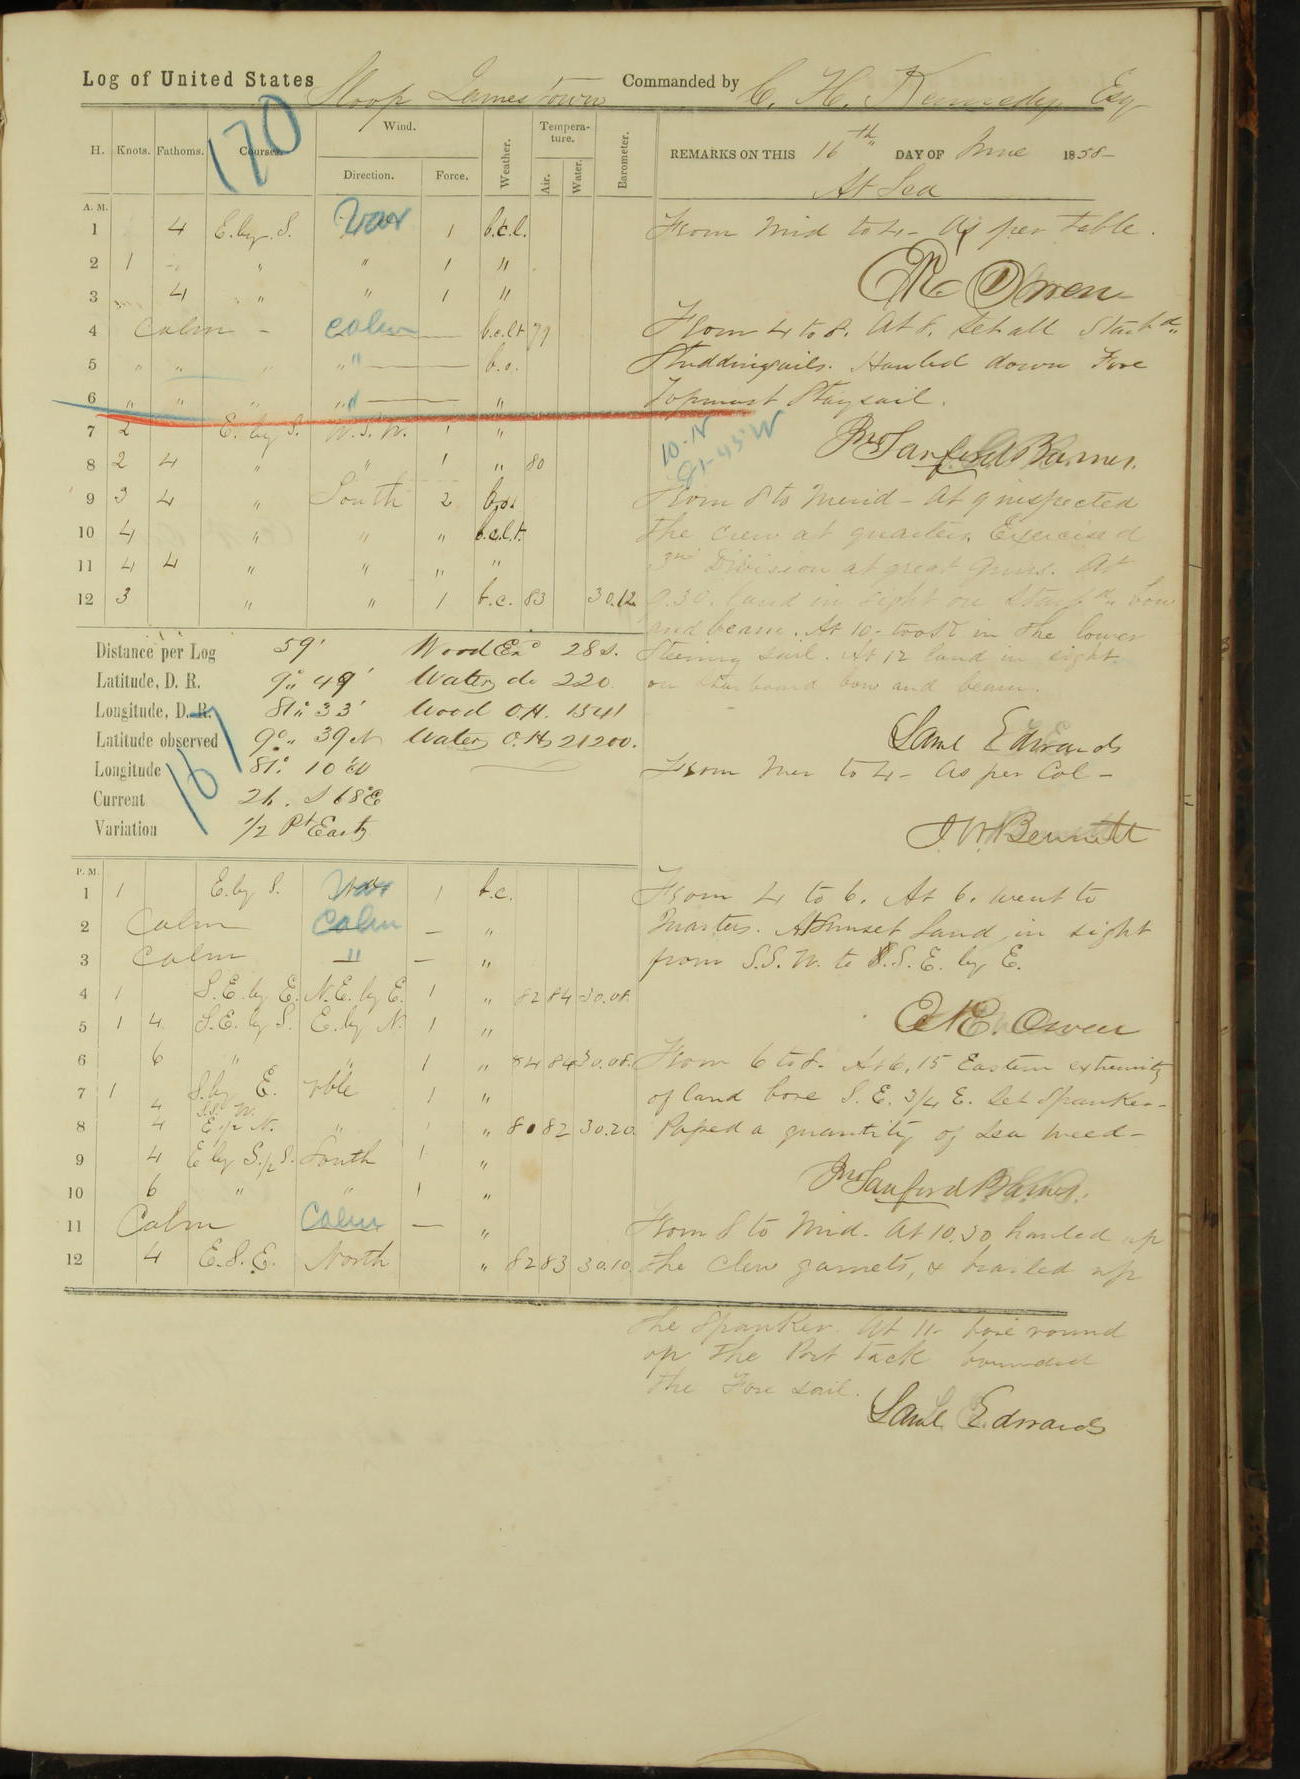 Log of United States Sloop Jamestown Commanded by C. H. Kennedy Esq
170
H. Knots. Fathoms. Courses. Wind. Direction. Force. Weather. Temperature. Air. Water. Barometer.
REMARKS ON THIS 16th DAY OF June 1858-
At Sea
A. M.
1 4 E. by S. Var 1 b.c.l.
2 1 - " " 1 "
3 4 " " " 1 "
4 Calm - calm b.c.l.t 79
5 " " " " b.c.
6 " " " " "
7 2 E. by S. W. S. W. 1 "
8 2 4 " " 1 " 80
9 3 4 " South 2
10 4 " " " b.c.l.t.
11 4 4 " " " "
12 3 " " 1 b.c. 83 30.12
From Mid to 4- As per table.
E R Owen
From 4 to 8. At 8. Set all Starbd
Studdingsails. Hauled down Fore
Topmast Staysail.
10-N
81-45 W
Jno Sanford Barnes.
From 8 to Merid- At 9 inspected
the crew at quarters. Exercised
3rd Division at great Guns. At
9.30. land in sight on Starbd bow
and beam. At 10- took in the lower
Steering sail. At 12 land in sight
on starboard bow and beam.
Saml Edwards
Distance per Log 59' Wood Exd 28 s.
Latitude, D. R. 9° 49' Water do 220
Longitude, D. R. 81° 33' Wood O.H. 1541
Latitude observed 9° 39 N Water O.H. 21200.
Longitude 81° 10' W
Current 2 h. S 68° E
Variation 1/2 Pt Easty
From Mer to 4- As per Col-
J W Bennett
P. M.
1 1 E. by S. Var 1 b.c.
2 Calm Calm - "
3 Calm " - "
4 1 S.E. by E. N.E. by E. 1 " 82 84 30.08
5 1 4 S.E. by S. E. by N. 1 "
6 6 " " 1 " 84 84 30.08
7 1 S. by E. vble 1 "
8 4 E. 1/2 N. " " 80 82 30.20
9 4 E by S. 1/2 S. South 1 "
10 6 " " 1 "
11 Calm Calm - "
12 4 E. S. E. North " 82 83 30.10
From 4 to 6. At 6. went to
Quarters. At Sunset Land in sight
from S.S.W. to S.S.E. by E.
E R E. Owen
From 6 to 8. At 6.15 Eastern extremity
of land bore S. E. 3/4 E. Set Spanker-
Passed a quantity of sea weed-
Jno Sanford Barnes.
From 8 to Mid. At 10.30 hauled up
the clew garnets, & brailed up
the Spanker. At 11- bore round
on the Port tack
the Fore sail.
Saml Edwards